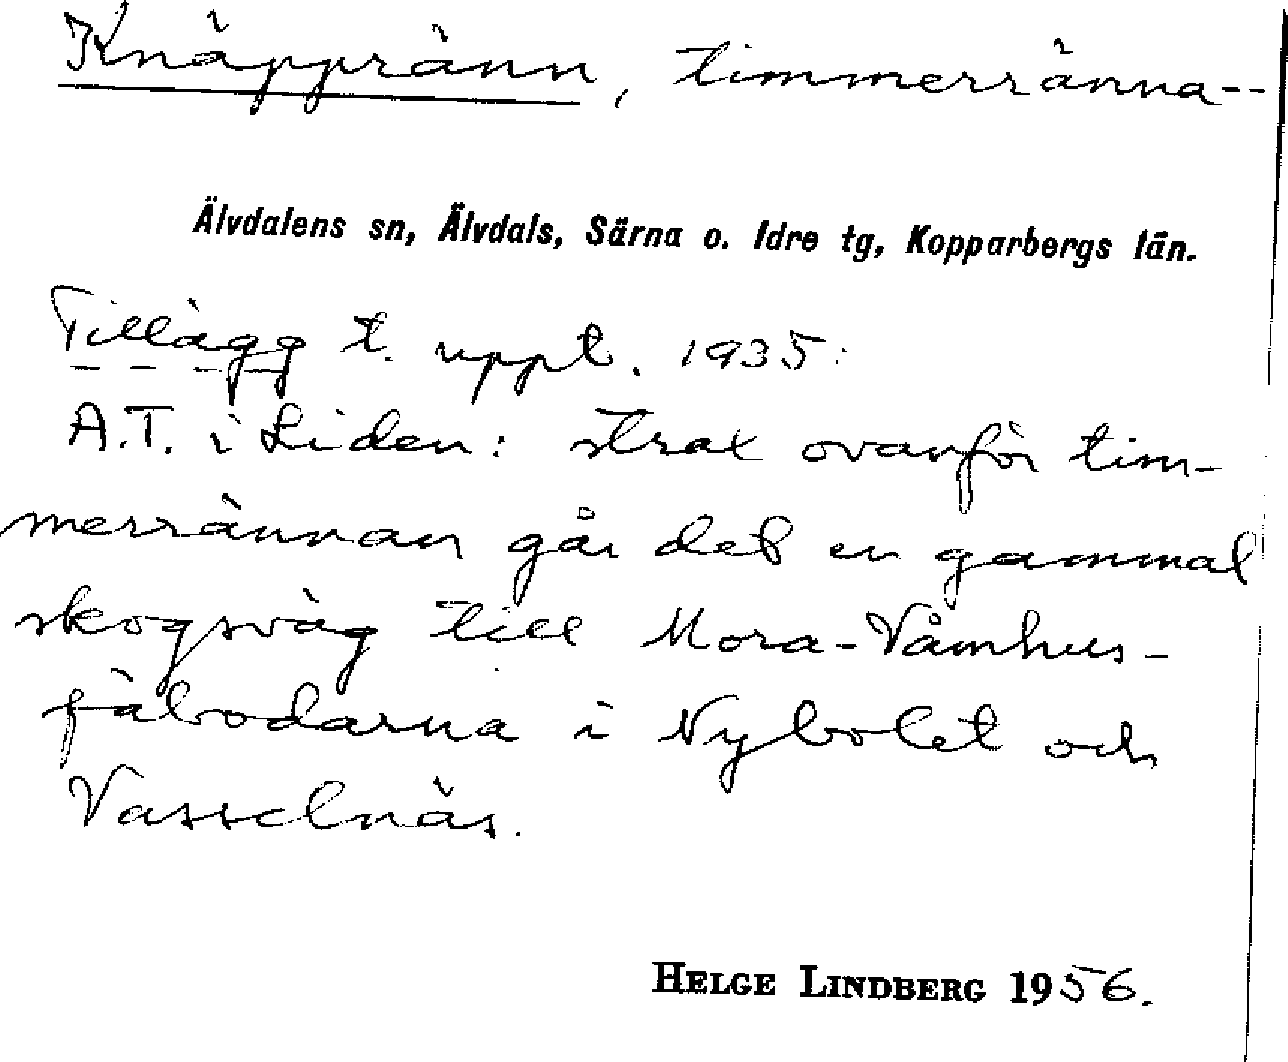 Knäppränn, timmerränna--
Älvdalens sn, Älvdals, Särna o. Idre tg, Kopparbergs län.
Tillägg t. uppt. 1935:
A.T. i Liden: strax ovanför tim-
merrännan går det en gammal
skogsväg till Mora-Våmhus-
fäbodarna i Nybolet och
Vasselnäs.
HELGE LINDBERG 1956.